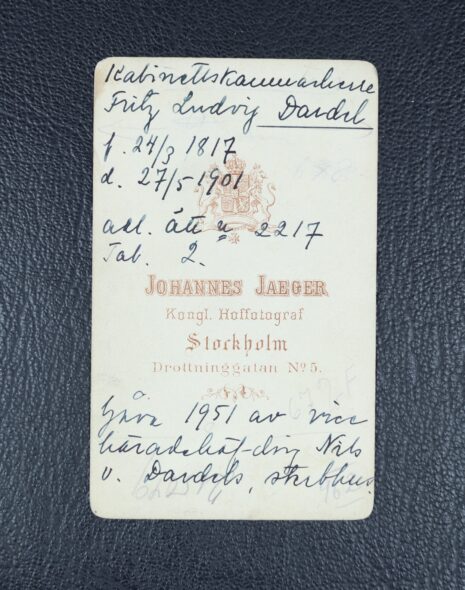 Kabinettskammarherre
Fritz Ludvig Dardel
f. 24/3 1817
d. 27/5 1901
adl. ätt n 2217
Tab. 2.
JOHANNES JAEGER
Kongl. Hoffotograf
Stockholm
Drottninggatan No 5.
Gåva 1951 av vice
häradshöf-ding Nils
v. Dardels, sterbhus.